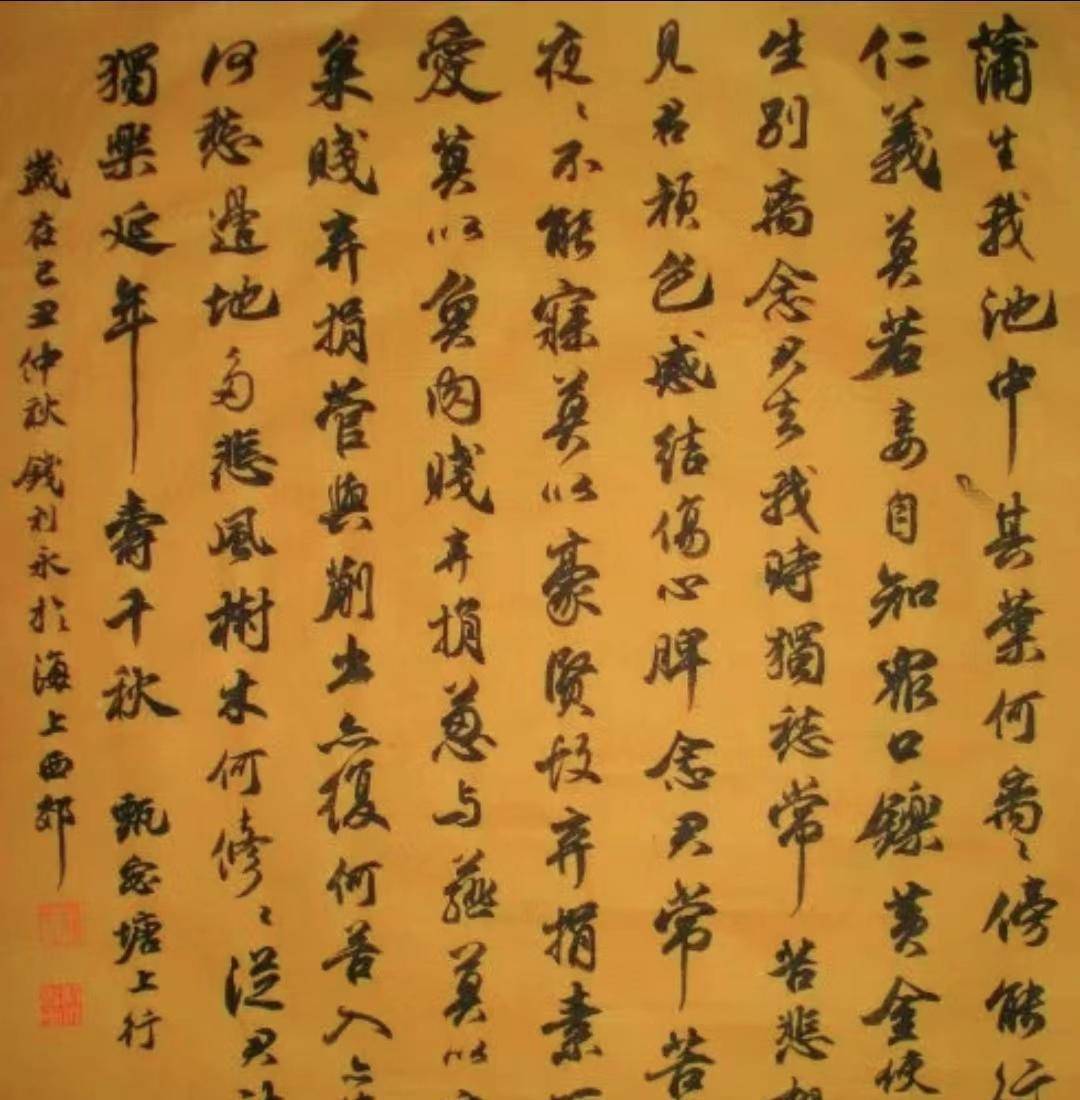 蒲生我池中其葉何离〻傍能行
仁義莫若妾自知眾口鑠黃金使
生別离念君去我時獨愁常苦悲
見君顏色感結傷心脾念君常苦
夜〻不能寐莫以豪賢故弃捐素
愛莫以魚肉賤弃捐蔥与薤莫以
枲賤弃捐菅與蒯出亦復何苦入亦
何愁邊地多悲風樹木何修〻從君
獨樂延年壽千秋 甄宓塘上行
歲在己丑仲秋錢利永於海上西郊